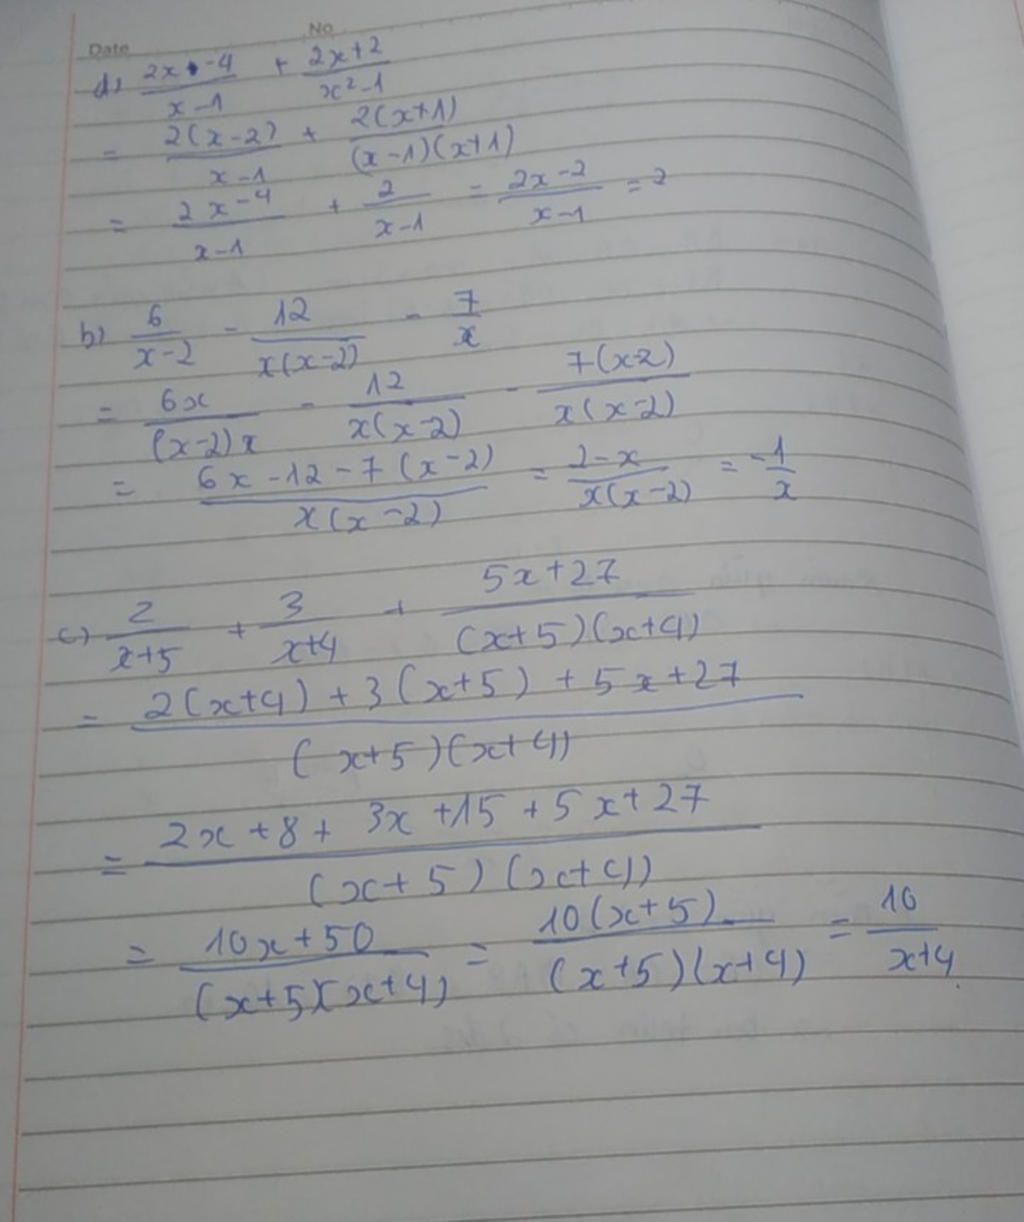 Date No
d) \frac{2x-4}{x-1} + \frac{2x+2}{x^2-1}
= \frac{2(x-2)}{x-1} + \frac{2(x+1)}{(x-1)(x+1)}
= \frac{2x-4}{x-1} + \frac{2}{x-1} = \frac{2x-2}{x-1} = 2
b) \frac{6}{x-2} - \frac{12}{x(x-2)} - \frac{7}{x}
= \frac{6x}{(x-2)x} - \frac{12}{x(x-2)} - \frac{7(x-2)}{x(x-2)}
= \frac{6x-12-7(x-2)}{x(x-2)} = \frac{2-x}{x(x-2)} = \frac{-1}{x}
c) \frac{2}{x+5} + \frac{3}{x+4} + \frac{5x+27}{(x+5)(x+4)}
= \frac{2(x+4)+3(x+5)+5x+27}{(x+5)(x+4)}
= \frac{2x+8+3x+15+5x+27}{(x+5)(x+4)}
= \frac{10x+50}{(x+5)(x+4)} = \frac{10(x+5)}{(x+5)(x+4)} = \frac{10}{x+4}